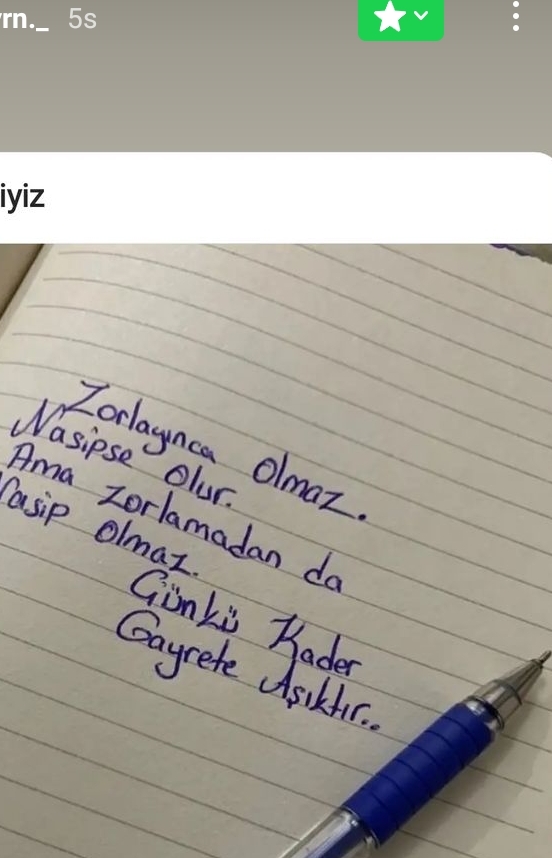 rn._ 5s
iyiz
Zorlayınca Olmaz.
Nasipse Olur.
Ama zorlamadan da
Nasip Olmaz.
Günkü Kader
Gayrete Aşıktır..